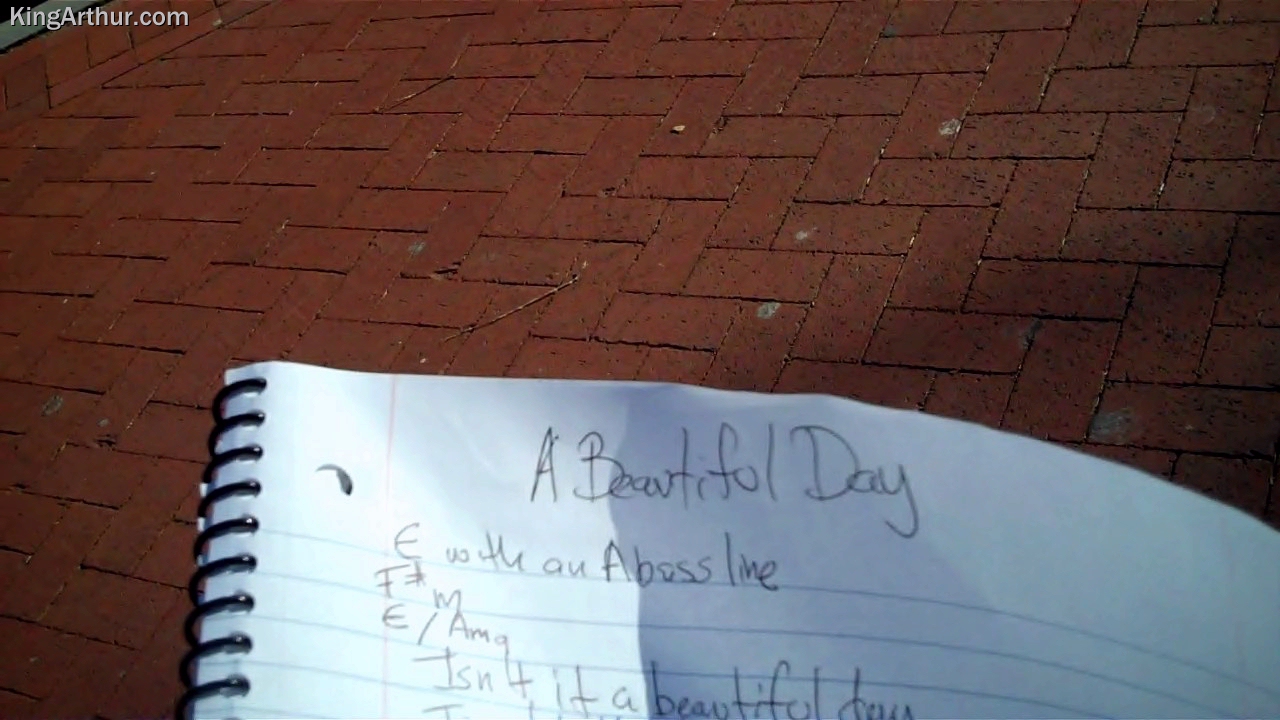 KingArthur.com
A Beautiful Day
E with an A bass line
F#m
E/Amaj
Isn't it a beautiful day